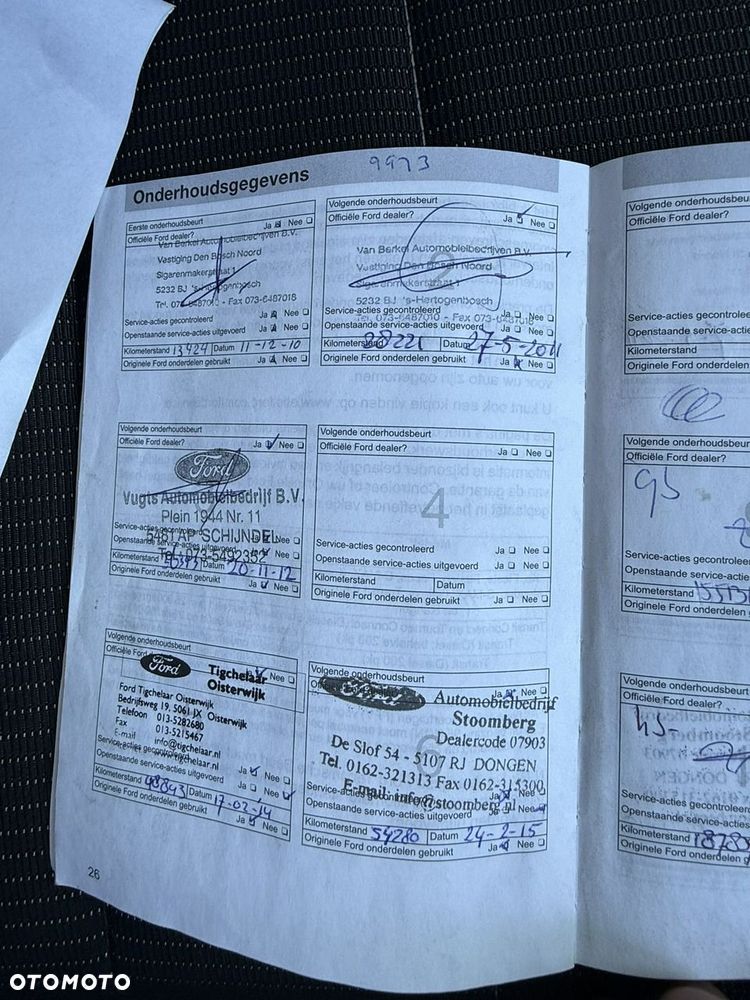 9973
Onderhoudsgegevens
Eerste onderhoudsbeurt
Officiële Ford dealer? Ja Nee
Van Berkel Automobielbedrijven B.V.
Vestiging Den Bosch Noord
Sigarenmakerstraat 1
5232 BJ 's-Hertogenbosch
Tel. 073-6487010 - Fax 073-6487018
Service-acties gecontroleerd Ja Nee
Openstaande service-acties uitgevoerd Ja Nee
Kilometerstand 13424 Datum 11-12-10
Originele Ford onderdelen gebruikt Ja Nee
Volgende onderhoudsbeurt
Officiële Ford dealer? Ja Nee
2
Van Berkel Automobielbedrijven B.V.
Vestiging Den Bosch Noord
Sigarenmakerstraat 1
5232 BJ 's-Hertogenbosch
Tel. 073-6487010 - Fax 073-6487018
Service-acties gecontroleerd Ja Nee
Openstaande service-acties uitgevoerd Ja Nee
Kilometerstand 28221 Datum 27-5-2011
Originele Ford onderdelen gebruikt Ja Nee
Volgende onderhoudsbeurt
Officiële Ford dealer? Ja Nee
Ford
Vugts Automobielbedrijf B.V.
Plein 1944 Nr. 11
5481 AP SCHIJNDEL
Tel. 073-5492352
Service-acties gecontroleerd
Openstaande service-acties uitgevoerd
Kilometerstand Datum 20-11-12
Originele Ford onderdelen gebruikt Ja Nee
Volgende onderhoudsbeurt
Officiële Ford dealer? Ja Nee
4
Service-acties gecontroleerd Ja Nee
Openstaande service-acties uitgevoerd Ja Nee
Kilometerstand Datum
Originele Ford onderdelen gebruikt Ja Nee
Volgende onderhoudsbeurt
Officiële Ford Nee
Ford Tigchelaar
Oisterwijk
Ford Tigchelaar Oisterwijk
Bedrijfsweg 19, 5061 JX Oisterwijk
Telefoon 013-5282680
Fax 013-5215467
E-mail info@tigchelaar.nl
www.tigchelaar.nl
Service-acties gecontroleerd Ja Nee
Openstaande service-acties uitgevoerd Ja Nee
Kilometerstand 48843 Datum 17-02-14
Originele Ford onderdelen gebruikt Ja Nee
Volgende onderhoudsbeurt
Ja Nee
Automobielbedrijf
Stoomberg
Dealercode 07903
De Slof 54 - 5107 RJ DONGEN
Tel. 0162-321313 Fax 0162-315300
E-mail: info@stoomberg.nl
Service-acties gecontroleerd Ja Nee
Openstaande service-acties uitgevoerd Ja Nee
Kilometerstand 54280 Datum 24-2-15
Originele Ford onderdelen gebruikt Ja Nee
26
Volgende onderhoudsbeurt
Officiële Ford dealer?
Service-acties gecontrolee
Openstaande service-acties
Kilometerstand
Originele Ford onderdelen
Volgende onderhoudsbeurt
Officiële Ford dealer?
Service-acties gecontrolee
Openstaande service-acties
Kilometerstand
Originele Ford onderdelen
Volgende onderhoudsbeurt
Officiële Ford dealer?
Service-acties gecontroleer
Openstaande service-acties
Kilometerstand
Originele Ford onderdelen g
OTOMOTO